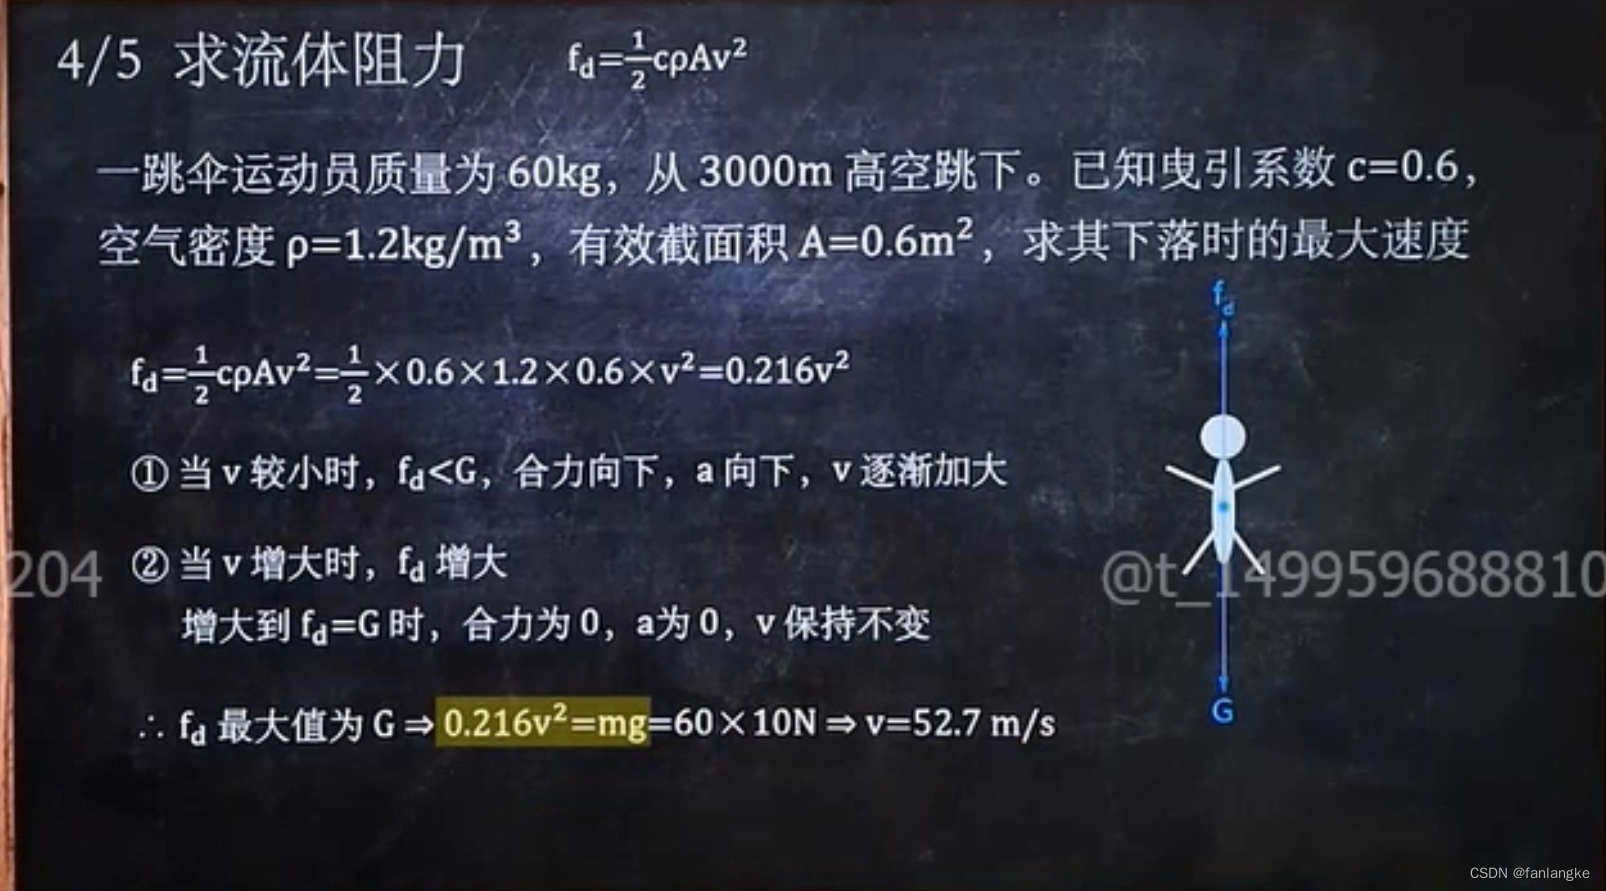 4/5 求流体阻力 f_d=\frac{1}{2}cρAv²
一跳伞运动员质量为 60kg，从 3000m 高空跳下。已知曳引系数 c=0.6，
空气密度 ρ=1.2kg/m³，有效截面积 A=0.6m²，求其下落时的最大速度
f_d
f_d=\frac{1}{2}cρAv²=\frac{1}{2}×0.6×1.2×0.6×v²=0.216v²
① 当 v 较小时，f_d<G，合力向下，a 向下，v 逐渐加大
② 当 v 增大时，f_d 增大
204
@t_149959688810
增大到 f_d=G 时，合力为 0，a为 0，v 保持不变
G
∴ f_d 最大值为 G ⇒ 0.216v²=mg=60×10N ⇒ v=52.7 m/s
CSDN @fanlangke